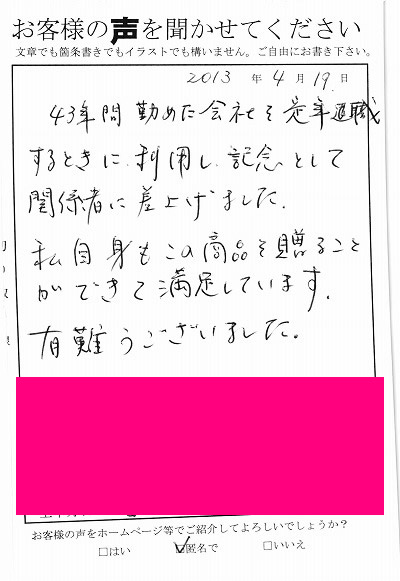 お客様の声を聞かせてください
文章でも箇条書きでもイラストでも構いません。ご自由にお書き下さい。
2013 年 4 月 19 日
43年間勤めた会社を定年退職
するときに利用し記念として
関係者に差上げました.
私自身もこの商品を贈ること
ができて満足しています.
有難うございました。
お客様の声をホームページ等でご紹介してよろしいでしょうか?
□はい ☑匿名で □いいえ